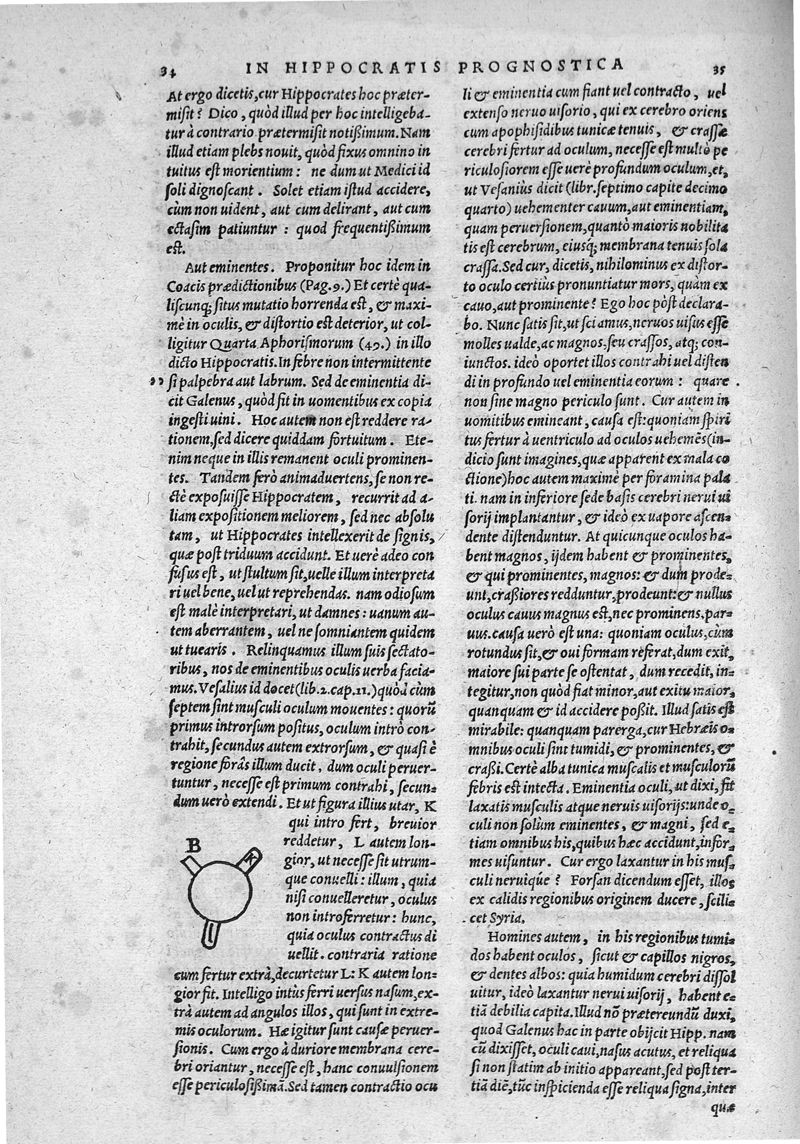 34 IN HIPPOCRATIS PROGNOSTICA 35
At ergo dicetis, cur Hippocrates hoc præter-
misit? Dico, quòd illud per hoc intelligeba-
tur à contrario prætermisit notißimum. Nam
illud etiam plebs nouit, quòd fixus omnino in
tuitus est morientium: ne dum ut Medici id
soli dignoscant. Solet etiam istud accidere,
cùm non uident, aut cum delirant, aut cum
ectasim patiuntur: quod frequentißimum
est.
Aut eminentes. Proponitur hoc idem in
Coacis prædictionibus (Pag.9.) Et certè qua-
liscunq; situs mutatio horrenda est, & maxi-
mè in oculis, & distortio est deterior, ut col-
ligitur Quarta Aphorismorum (49.) in illo
dicto Hippocratis. In febre non intermittente
,, si palpebra aut labrum. Sed de eminentia di-
cit Galenus, quòd sit in uomentibus ex copia
ingesti uini. Hoc autem non est reddere ra-
tionem, sed dicere quiddam fortuitum. Ete-
nim neque in illis remanent oculi prominen-
tes. Tandem serò animaduertens, se non re-
ctè exposuisse Hippocratem, recurrit ad a-
liam expositionem meliorem, sed nec absolu
tam, ut Hippocrates intellexerit de signis,
quæ post triduum accidunt. Et uerè adeo con
fusus est, ut stultum sit, uelle illum interpreta
ri uel bene, uel ut reprehendas. nam odiosum
est malè interpretari, ut damnes: uanum au-
tem aberrantem, uel ne somniantem quidem
ut tuearis. Relinquamus illum suis sectato-
ribus, nos de eminentibus oculis uerba facia-
mus. Vesalius id docet (lib.2.cap.11.) quòd cùm
septem sint musculi oculum mouentes: quorū
primus introrsum positus, oculum intrò con-
trahit, secundus autem extrorsum, & quasi è
regione forâs illum ducit, dum oculi peruer-
tuntur, necesse est primum contrahi, secun-
dum uerò extendi. Et ut figura illius utar, K
qui intro fert, breuior
reddetur, L autem lon-
gior, ut necesse sit utrum-
que conuelli: illum, quia
nisi conuelleretur, oculus
non introferretur: hunc,
quia oculus contractus di
uellit. contraria ratione
B
K
L
cum fertur extrà, decurtetur L: K autem lon-
gior fit. Intelligo intùs ferri uersus nasum, ex-
trà autem ad angulos illos, qui sunt in extre-
mis oculorum. Hæ igitur sunt causæ peruer-
sionis. Cum ergo à duriore membrana cere-
bri oriantur, necesse est, hanc conuulsionem
esse periculosißimā. Sed tamen contractio ocu
li & eminentia cum fiant uel contracto, uel
extenso neruo uisorio, qui ex cerebro oriens
cum apophisidibus tunicæ tenuis, & crassæ
cerebri fertur ad oculum, necesse est multò pe
riculosiorem esse uerè profundum oculum, et,
ut Vesanius dicit (libr. septimo capite decimo
quarto) uehementer cauum, aut eminentiam,
quam peruersionem, quantò maioris nobilita
tis est cerebrum, eiusq; membrana tenuis sola
crassa. Sed cur, dicetis, nihilominus ex distor-
to oculo certiùs pronuntiatur mors, quàm ex
cauo, aut prominente? Ego hoc pòst declara-
bo. Nunc satis sit, ut sciamus, neruos uisus esse
molles ualde, ac magnos, seu crassos, atq; con-
iunctos. ideò oportet illos contrahi uel disten
di in profundo uel eminentia eorum: quare
non sine magno periculo sunt. Cur autem in
uomitibus emineant, causa est: quoniam spiri
tus fertur à uentriculo ad oculos uehemēs (in-
dicio sunt imagines, quæ apparent ex mala co
ctione) hoc autem maximè per foramina pala
ti. nam in inferiore sede basis cerebri nerui ui
sorij implantantur, & ideò ex uapore ascen-
dente distenduntur. At quicunque oculos ha-
bent magnos, ijdem habent & prominentes,
& qui prominentes, magnos: & dum prode-
unt, craßiores redduntur, prodeunt: & nullus
oculus cauus magnus est, nec prominens, par-
uus. causa uerò est una: quoniam oculus, cùm
rotundus sit, & oui formam referat, dum exit,
maiore sui parte se ostentat, dum recedit, in-
tegitur, non quòd fiat minor, aut exitu maior,
quanquam & id accidere poßit. Illud satis est
mirabile: quanquam parerga, cur Hebræis o-
mnibus oculi sint tumidi, & prominentes, &
craßi. Certè alba tunica muscalis et musculorū
febris est intecta. Eminentia oculi, ut dixi, fit
laxatis musculis atque neruis uisorijs: unde o-
culi non solùm eminentes, & magni, sed e-
tiam omnibus his, quibus hæc accidunt, infor-
mes uisuntur. Cur ergo laxantur in his mus-
culi neruique? Forsan dicendum esset, illos
ex calidis regionibus originem ducere, scili-
cet Syria.
Homines autem, in his regionibus tumi-
dos habent oculos, sicut & capillos nigros,
& dentes albos: quia humidum cerebri dissol
uitur, ideò laxantur nerui uisorij, habent e-
tiā debilia capita. Illud nō prætereundū duxi,
quod Galenus hac in parte obijcit Hipp. nam
cū dixisset, oculi caui, nasus acutus, et reliqua
si non statim ab initio appareant, sed post ter-
tiā diē, tūc inspicienda esse reliqua signa, inter
quæ